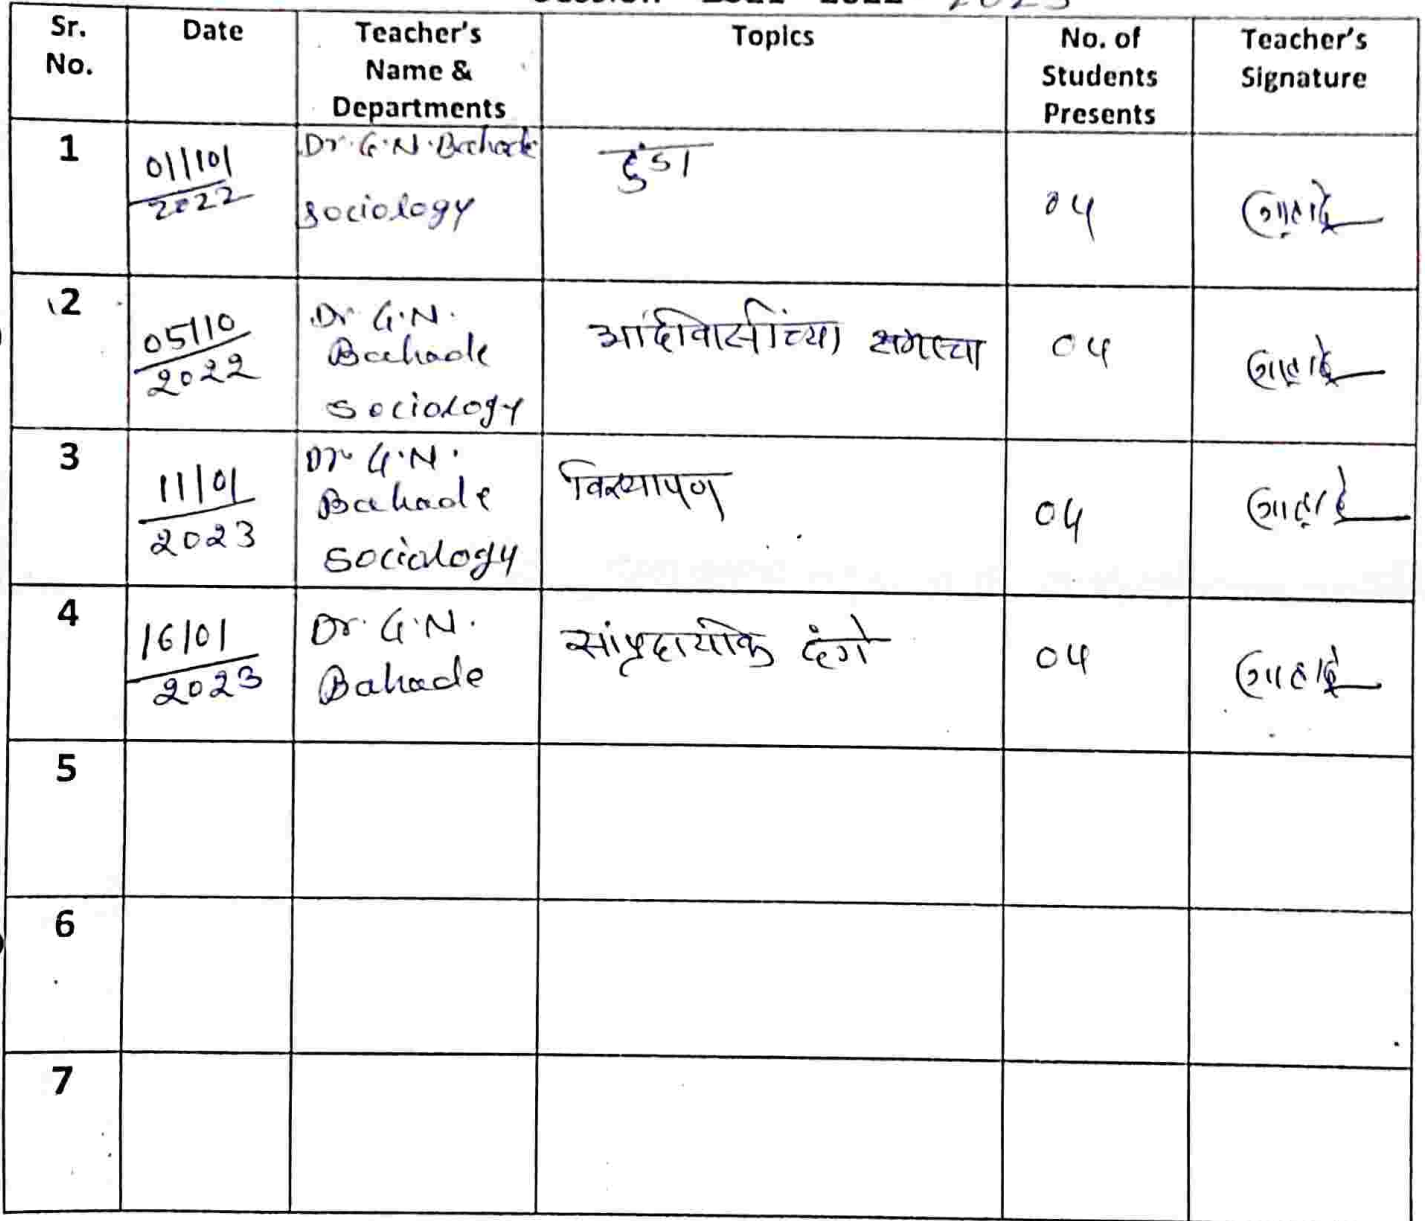 Sr. No. Date Teacher's Name & Departments Topics No. of Students Presents Teacher's Signature
1 01/101 2022 Dr. G. N. Bahade sociology हुंडा 04
2 05/10 2022 Dr G.N. Bahade sociology आदीवासींच्या समस्या 04
3 11/01 2023 Dr. G.N. Bahade sociology विस्थापण 04
4 16/01 2023 Dr. G.N. Bahade सांप्रदायीक दंगे 04
5
6
7